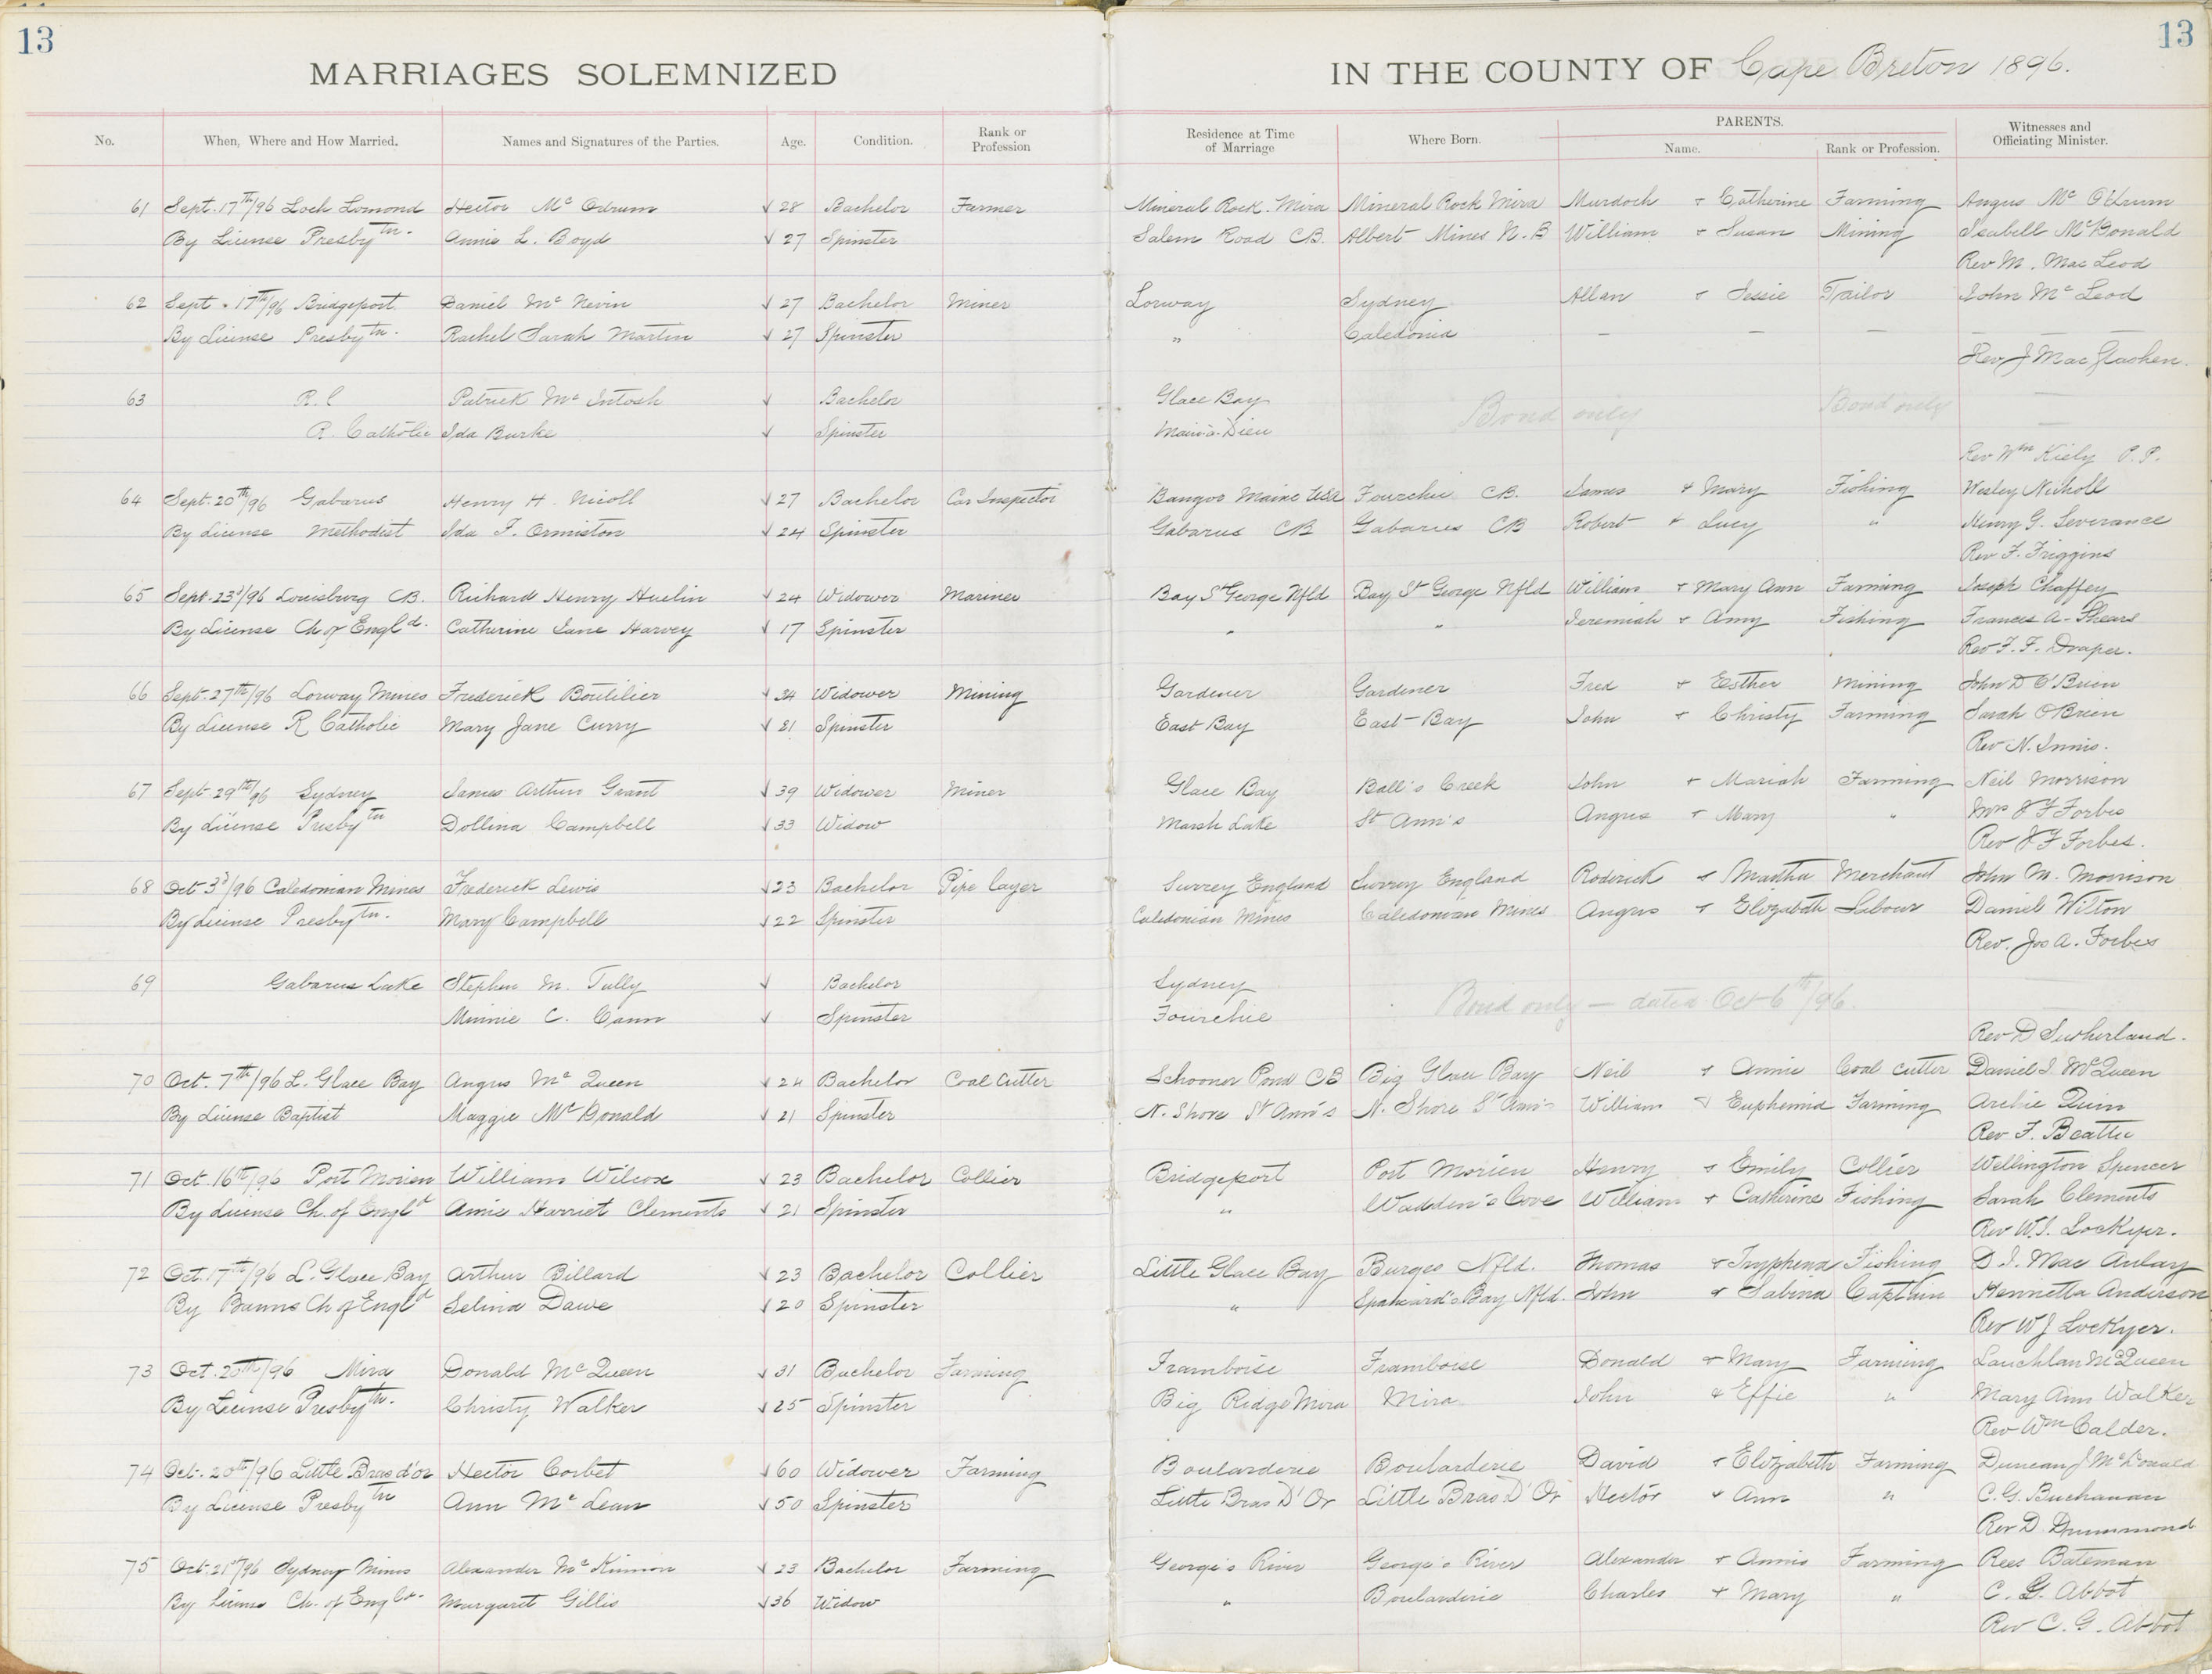 13
13
MARRIAGES SOLEMNIZED IN THE COUNTY OF Cape Breton 1896.
No. When, Where and How Married. Names and Signatures of the Parties. Age. Condition. Rank or Profession Residence at Time of Marriage Where Born. PARENTS. Name. Rank or Profession. Witnesses and Officiating Minister.
61 Sept. 17th/96 Loch Lomond Hector Mc Odrum √ 28 Bachelor Farmer Mineral Rock. Mira Mineral Rock Mira Murdoch + Catherine Farming Angus Mc Odrum
By License Presbytn. Annie L. Boyd √ 27 Spinster Salem Road CB. Albert Mines N.B William + Susan Mining Isabell McDonald
Rev M. Mac Leod
62 Sept. 17th/96 Bridgeport Daniel Mc Nevin √ 27 Bachelor Miner Lorway Sydney Allan + Jessie Tailor John Mc Leod
By License Presbytn. Rachel Sarah Martin √ 27 Spinster " Caledonia — — — —
Rev J Mac Glashen.
63 R.C Patrick Mc Intosh √ Bachelor Glace Bay Bond only Bond only —
R. Catholic Ida Burke √ Spinster Main-a-Dieu —
Rev Wm Kiely P.P.
64 Sept. 20th/96 Gabarus Henry H. Nicoll √ 27 Bachelor Car Inspector Bangor Maine USA Fourchie CB. James + Mary Fishing Wesley Nicholl
By License Methodist Ida F. Ormiston √ 24 Spinster Gabarus CB Gabarus CB Robert + Lucy " Henry G. Severance
Rev F. Friggins
65 Sept. 23d/96 Louisburg CB. Richard Henry Huelin √ 24 Widower Mariner Bay St George Nfld Bay St George Nfld William + Mary Ann Farming Joseph Chaffey
By License Ch of Engld. Catherine Jane Harvey √ 17 Spinster " " Jeremiah + Amy Fishing Frances A. Shears
Rev F. F. Draper.
66 Sept. 27th/96 Lorway Mines Frederick Boutilier √ 34 Widower Mining Gardener Gardener Fred + Esther Mining John D O'Brien
By License R Catholic Mary Jane Curry √ 21 Spinster East Bay East-Bay John + Christy Farming Sarah OBrien
Rev N. Innis.
67 Sept 29th/96 Sydney James Arthur Grant √ 39 Widower Miner Glace Bay Ball's Creek John + Mariah Farming Neil Morrison
By License Presbytn Dollina Campbell √ 33 Widow Marsh Lake St Ann's Angus + Mary " Mrs J F Forbes
Rev J F Forbes.
68 Oct 3d/96 Caledonian Mines Frederick Lewis √ 23 Bachelor Pipe layer Surrey England Surrey England Roderick + Martha Merchant John M. Morrison
By License Presbytn. Mary Campbell √ 22 Spinster Caledonian Mines Caledonian Mines Angus + Elizabeth Labour Daniel Wilton
Rev. Jos A. Forbes
69 Gabarus Lake Stephen M. Tully √ Bachelor Sydney Bond only — dated Oct 6th/96.
Minnie C. Cann √ Spinster Fourchie
Rev D Sutherland.
70 Oct. 7th/96 L. Glace Bay Angus Mc Queen √ 24 Bachelor Coal Cutter Schooner Pond CB Big Glace Bay Neil + Annie Coal cutter Daniel J. McQueen
By License Baptist Maggie McDonald √ 21 Spinster N. Shore St Ann's N. Shore St Ann's William + Euphemia Farming Archie Quin
Rev F. Beattie
71 Oct 16th/96 Port Morien William Wilcox √ 23 Bachelor Collier Bridgeport Port Morien Henry + Emily Collier Wellington Spencer
By License Ch. of Engld Amie Harriet Clements √ 21 Spinster " Wadden's Cove William + Catherine Fishing Sarah Clements
Rev W.J. Lockyer.
72 Oct. 17th/96 L. Glace Bay Arthur Billard √ 23 Bachelor Collier Little Glace Bay Burgeo Nfld. Thomas + Tryphena Fishing D. J. Mac Aulay
By Banns Ch of Engld Selina Dawe √ 20 Spinster " Spaniard's Bay Nfld. John + Sabina Captain Henrietta Anderson
Rev W J Lockyer.
73 Oct. 20th/96 Mira Donald Mc Queen √ 31 Bachelor Farming Framboise Framboise Donald + Mary Farming Lauchlan McQueen
By License Presbytn. Christy Walker √ 25 Spinster Big Ridge Mira Mira John + Effie " Mary Ann Walker
Rev Wm Calder.
74 Oct. 20th/96 Little Bras d'or Hector Corbet √ 60 Widower Farming Boularderie Boularderie David + Elizabeth Farming Duncan J McDonald
By License Presbytn Ann Mc Lean √ 50 Spinster Little Bras D'Or Little Bras D'Or Hector + Ann " C. G. Buchanan
Rev D Drummond
75 Oct. 21st/96 Sydney Mines Alexander Mc Kinnon √ 23 Bachelor Farming George's River George's River Alexander + Annie Farming Rees Bateman
By License Ch. of Engld. Margaret Gillis √ 36 Widow " Boularderie Charles + Mary " C. G. Abbot
Rev C. G. Abbot